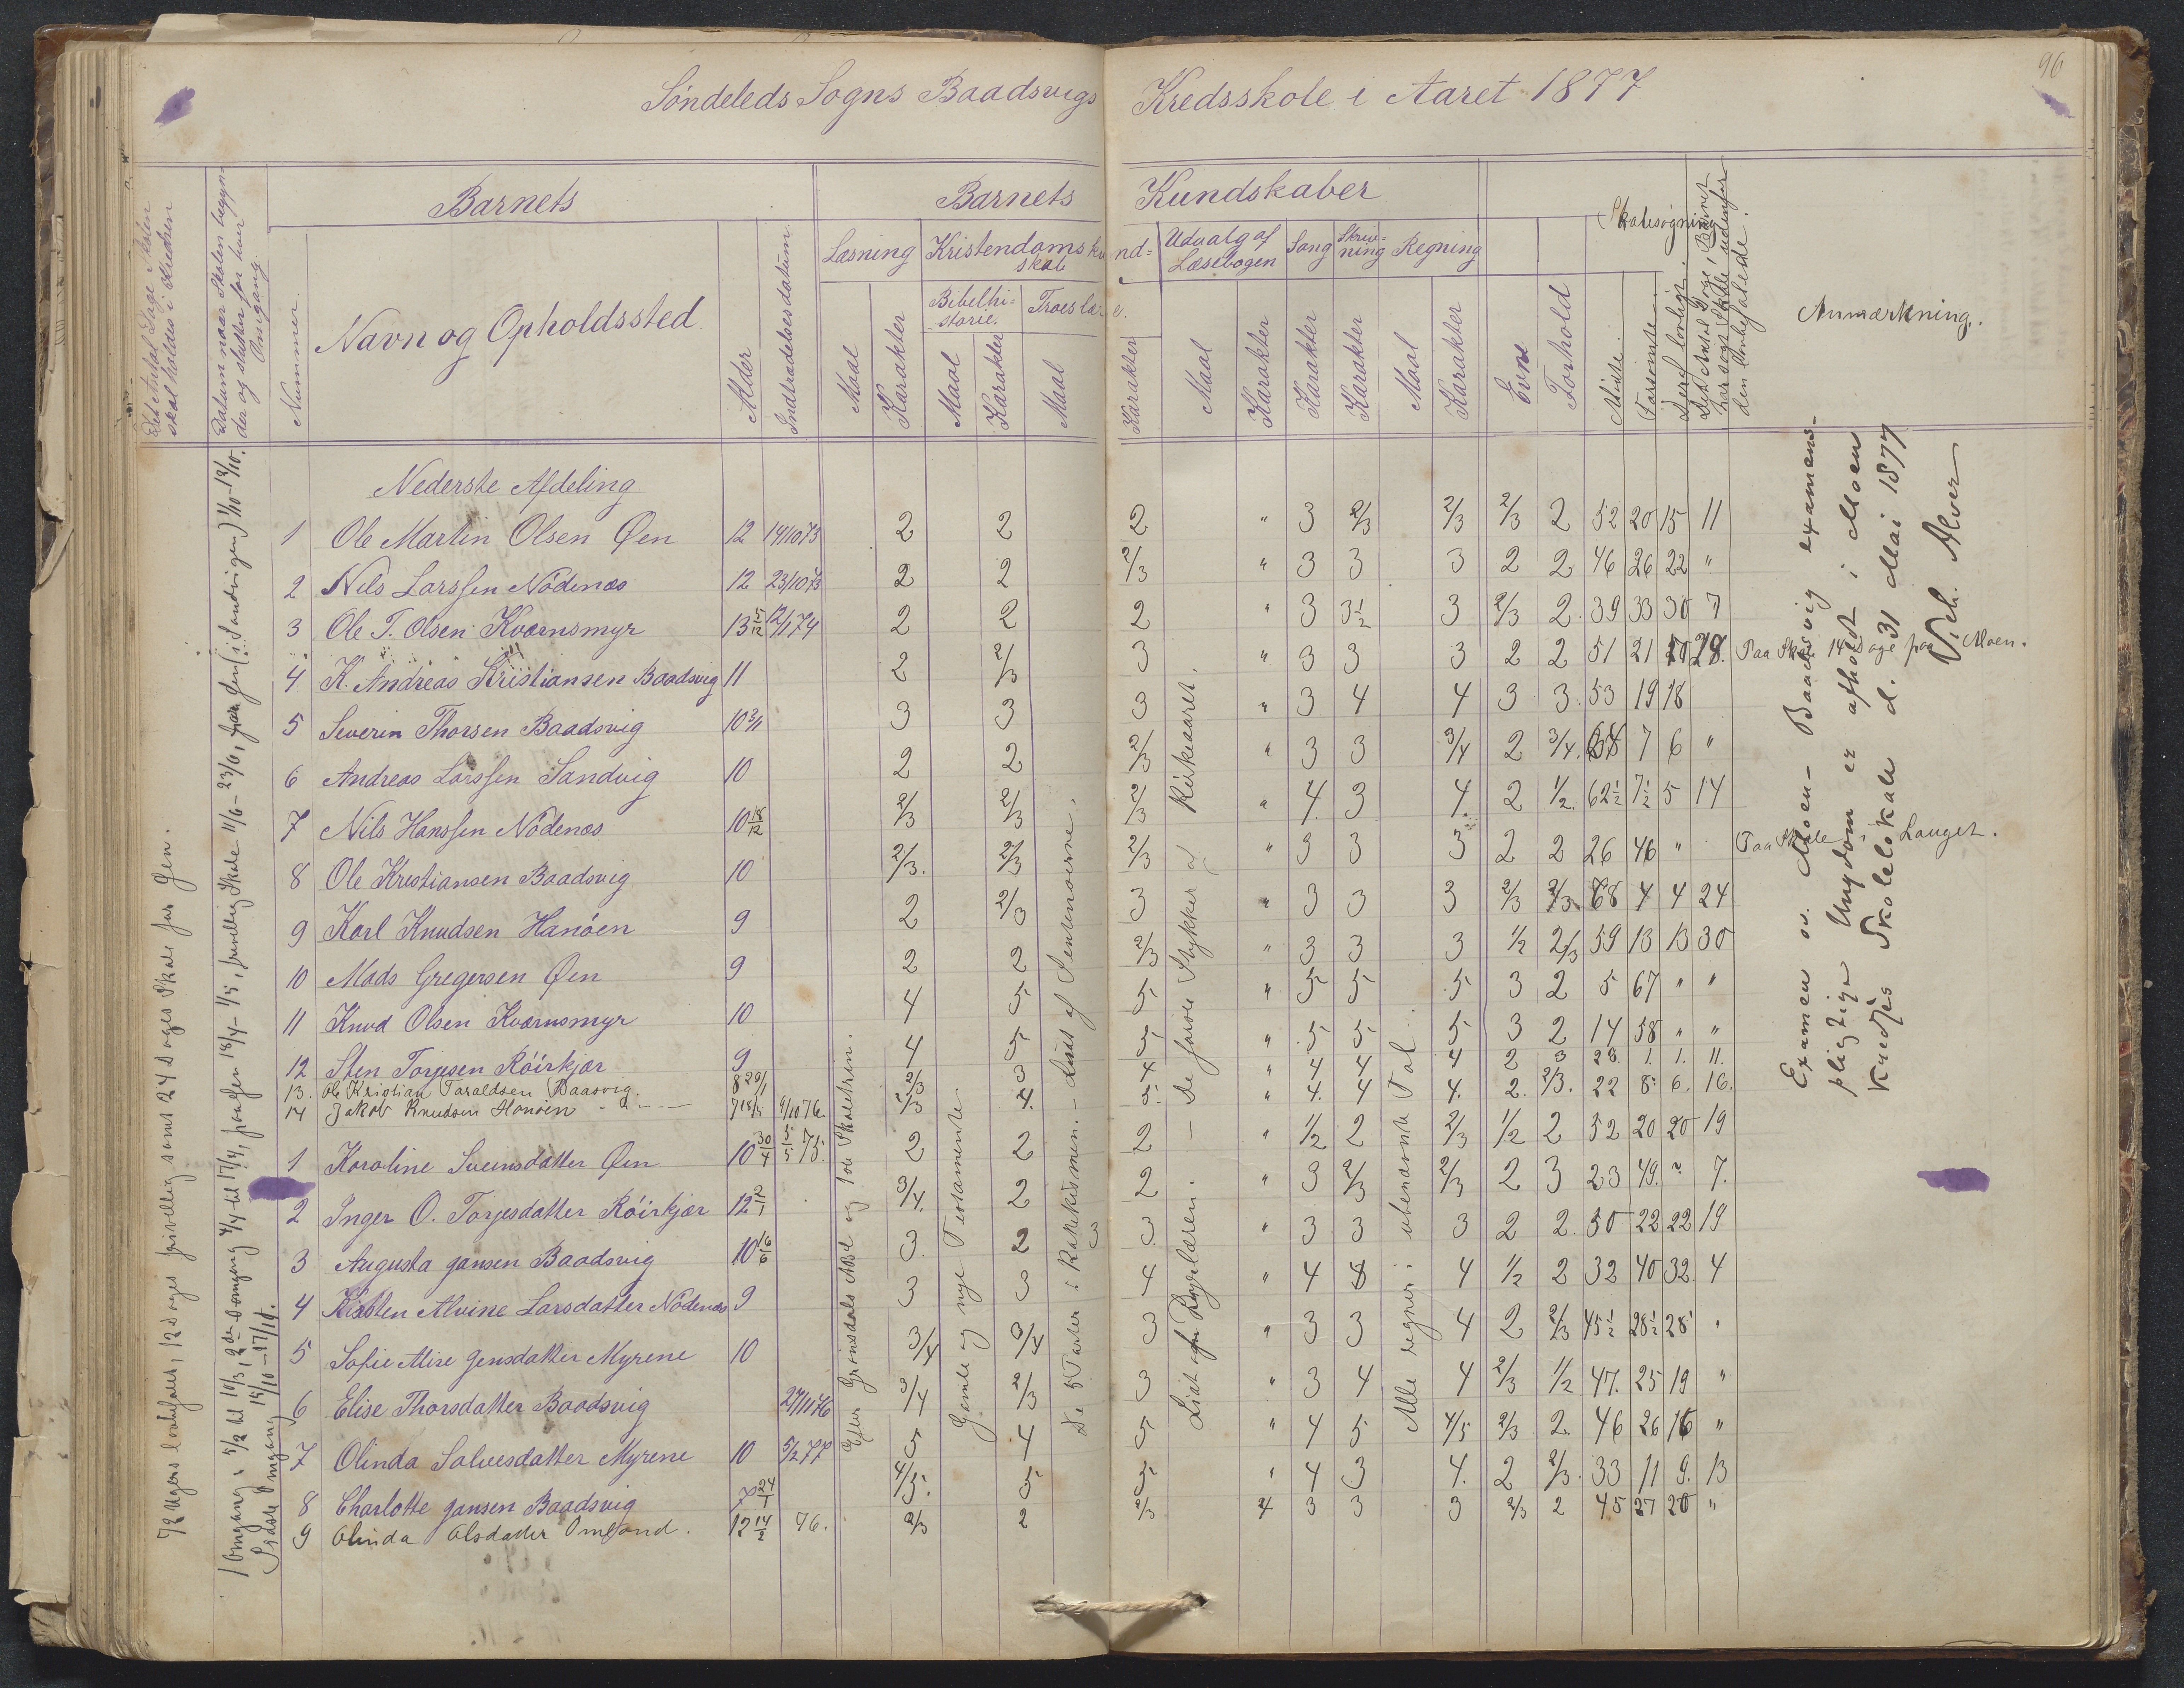 96
Søndeleds Sogns Baadsvigs Kredsskole i Aaret 1877
Det Antal Dage Skolen skal holdes i Kredsen
Datum naar Skolen begynder og slutter for hver Omgang.
Nummer.
Barnets
Navn og Opholdssted
Alder
Indtrædelsesdatum.
Barnets Kundskaber
Læsning
Maal
Karakter
Kristendomskundskab
Bibelhistorie.
Maal
Karakter
Troeslære.
Maal
Karakter
Udvalg af Læsebogen
Maal
Karakter
Sang
Karakter
Skrivning
Karakter
Regning
Maal
Karakter
Evne
Forhold
Skolesøgning
Mødte.
Forsømte.
Deraf lovligt.
Det Antal Dage Barnet har søgt Skole udenfor den anbefalede.
Anmærkning.
Nederste Afdeling
1 Ole Martin Olsen Øen 12 14/10 73 2 2 2 " 3 2/3 2/3 2/3 2 52 20 15 11
2 Nils Larssen Nødenæs 12 23/10 73 2 2 2/3 " 3 3 3 2 2 46 26 22 "
3 Ole T. Olsen Kværnsmyr 13 5/12 12/1 74 2 2 2 " 3 3½ 3 2/3 2. 39 33 30 7
4 K. Andreas Kristiansen Baadsvig 11 2 2/3 3 " 3 3 3 2 2 51 21 28. Paa Skole 14 Dage paa Moen.
5 Severin Thorsen Baadsvig 10 3/11 3 3 3 " 3 4 4 3 3. 53 19 18
6 Andreas Larssen Sandvig 10 2 2 2/3 " 3 3 3/4 2 3/4. 7 6 "
7 Nils Hanssen Nødenæs 10 18/12 2/3 2/3 2/3 " 4. 3 4. 2 1/2. 62½ 7½ 5 14
8 Ole Kristiansen Baadsvig 10 2/3. 2/3 2/3 " 3 3 3 2 2 26 46 " Paa Skole i Lauget.
9 Karl Knudsen Hanøen 9 2 2/3 3 " 3 3 3 2/3 2/3. 68 4 4 24
10 Mads Gregersen Øen 9 2 2 2/3 " 3 3 3 1/2 2/3 59 13 13 30
11 Knud Olsen Kværnsmyr 10 4 5 5 " 5 5 5 3 2 5 67 " "
12 Sten Torjesen Röirkjær 9 4 5 5 " 5 5 5 3 2 14 58 " "
13. Ole Kristian Taraldsen Baasvig. 8 29/1 2/3 3 4 " 4 4 4 2 3 28. 1. 1. 11.
14 Jakob Knudsen Hanöen 7 4/10 76. 2/3 4. 5. " 4. 4 4. 2. 2/3. 22 8 6. 16.
1 Karoline Svensdatter Øen 10 30/4 5/5 75. 2 2 2 " 1/2 2 2/3 1/2 2 52 20 20 19
2 Inger O. Torjesdatter Röirkjær 12 2/1 3/4. 2 2 " 3 2/3 2/3 2 3 23 49. " 7.
3 Augusta Jansen Baadsvig 10 16/6 3. 2 3 " 3 3 3 2 2. 50 22 22 19
4 Kirsten Alvine Larsdatter Nödenæs 9 3 3 4 " 4 4 1/2 2 32 40 32. 4
5 Sofie Alise Jensdatter Myrene 10 3/4 3/4 3 " 3 3 4 2 2/3 45½ 28½ 28 "
6 Elise Thorsdatter Baadsvig 27/11 76 3/4 2/3 3 " 3 4 4 2/3 1/2 47. 25 19 "
7 Olinda Salvesdatter Myrene 10 5/2 77 5 4 5 " 4 5 4/5 2/3 2. 46 26 16 "
8 Charlotte Jansen Baadsvig 7 24/1 4/5. 5 5 " 4 3 4. 2 2/3. 33 11 9. 13
9 Olinda Olsdatter Omland. 12 14/2 76. 2/3 2 2/3 4 3 3 3 2/3 2 45 27 20 "
72 Ugers lovbefalet, 12 Dages frivillig samt 24 Dages Skole
1 Omgang: 5/2 til 10/3, 2den Omgang 4/4 til 17/4, 18/4 - 1/5, frivillig Skole 11/6 - 23/6, (i Sandvigen) 1/10 - 12/10.
Sidste Omgang 15/10 - 17/11.
Efter Grönsdals ABC og 1ste Skoletrin.
Gamle og nye Testamente
De 5 Parter i Katekismen. - Lidt af Sententserne.
Lidt af Dyrelæren. - De første Stykker af Kirkeaaret.
Alle regner i ubenævnte Tal.
Examen ov. Moen - Baadsvig examenspligtige Ungdom er afholdt i Moen Kredses Skolelokale d. 31 Mai 1877
Vilh. Alver